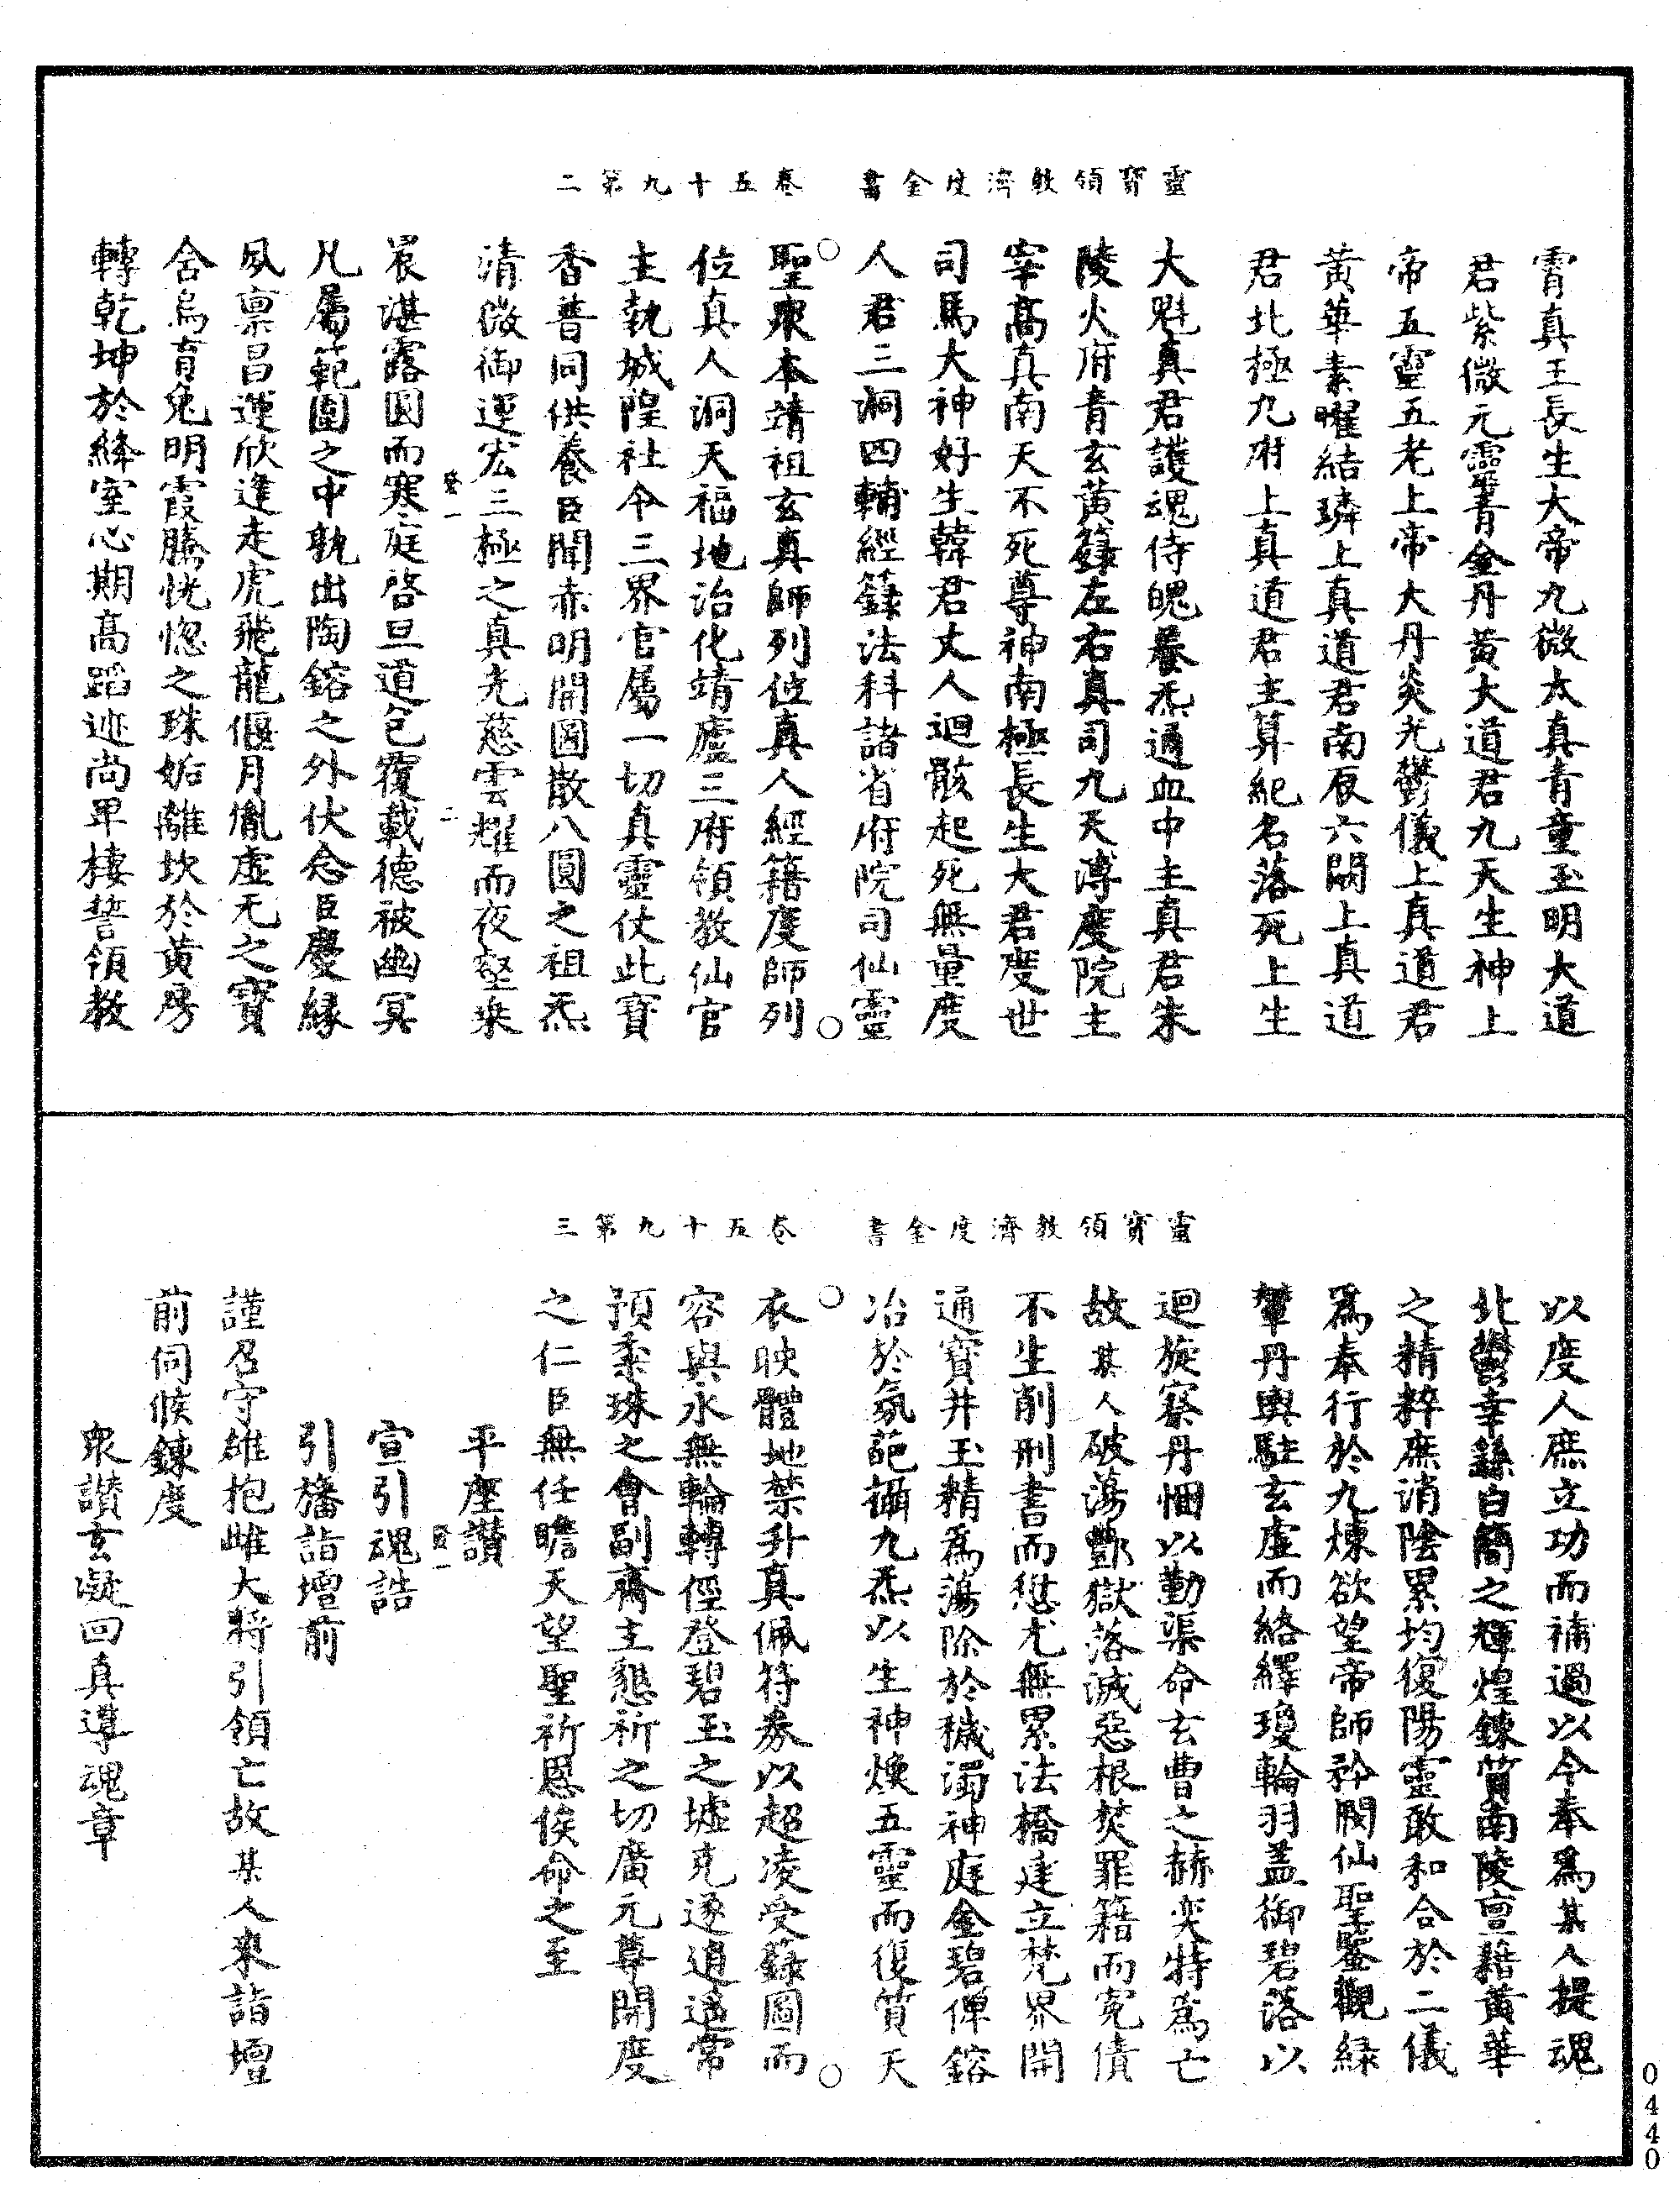 靈寶領教濟度金書　卷五十九第二
霄真王長生大帝九微太真青童玉明大道
君紫微元靈青金丹黃大道君九天生神上
帝五靈五老上帝大丹炎光鬱儀上真道君
黃華素曜結璘上真道君南辰六閤上真道
君北極九府上真道君主算紀名落死上生
大魁真君護魂侍魄養炁通血中主真君朱
陵火府青玄黃籙左右真司九天溥度院主
宰高真南天不死尊神南極長生大君度世
司馬大神好生韓君丈人迴骸起死無量度
人君三洞四輔經籙法科諸省府院司仙靈
聖衆本靖祖玄真師列位真人經籍度師列
位真人洞天福地治化靖廬三府領教仙官
主執城隍社令三界官屬一切真靈仗此寳
香普同供養臣聞赤明開圖散八圓之祖炁
清微御運宏三極之真光慈雲耀而夜壑來
晨湛露圓而寒庭啓旦道包覆載德被幽冥
凡屬範圍之中孰出陶鎔之外伏念臣慶緣
夙禀昌運欣逢走虎飛龍偃月胤虛无之寳
舍烏育兔明霞騰恍惚之珠姤離坎於黃房
轉乾坤於絳室心期高蹈迹尚卑棲誓領教
靈寶領教濟度金書　卷五十九第三
以度人庶立功而補過以今奉爲某人提魂
北鬱幸繇白簡之輝煌鍊質南陵亶藉黃華
之精粹庶消陰累均復陽靈敢和合於二儀
爲奉行於九煉欲望帝師矜閔仙聖鑒觀綠
輦丹輿駐玄虛而絡繹瓊輪羽蓋御碧落以
迴旋察丹悃以勤渠命玄曹之赫奕特爲亡
故某人破蕩酆獄落滅惡根焚罪籍而寃債
不生削刑書而愆尤無累法橋建立梵界開
通寳井玉精爲蕩除於穢濁神庭金碧俾鎔
冶於氛葩攝九炁以生神煥五靈而復質天
衣映體地禁升真佩符券以超凌受籙圖而
容與永無輪轉徑登碧玉之墟克遂逍遥常
預黍珠之會副齋主懇祈之切廣元尊開度
之仁臣無任瞻天望聖祈恩俟命之至
平座讚
宣引魂誥
引旛詣壇前
謹召守雄抱雌大將引領亡故某人來詣壇
前伺候鍊度
衆讃玄凝回真導魂章
0440